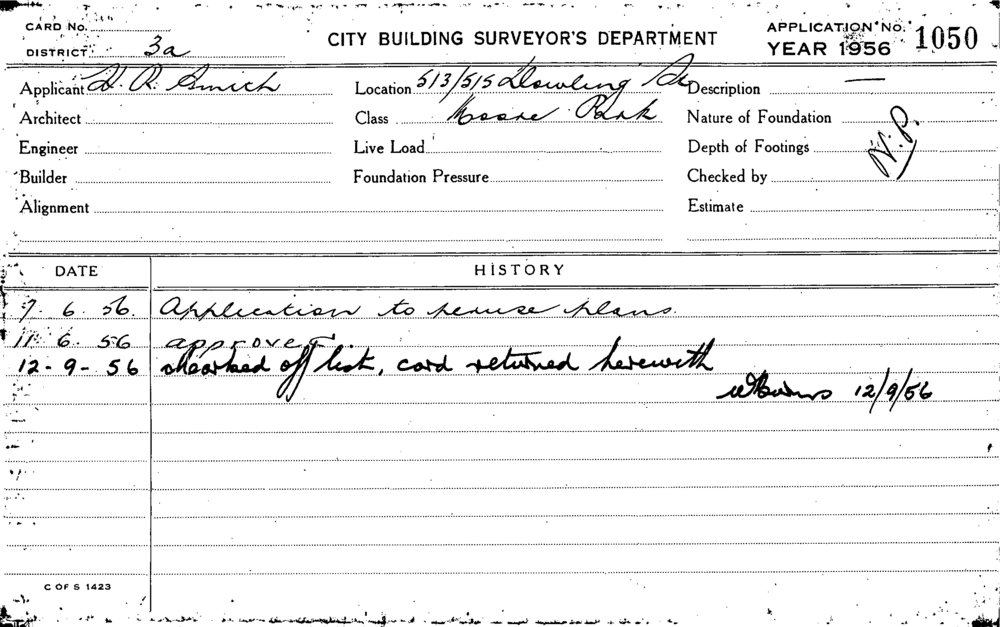 CARD No.
DISTRICT 3a
CITY BUILDING SURVEYOR'S DEPARTMENT
APPLICATION No. 1050
YEAR 1956
Applicant H. R. Smith
Location 513/515 Dowling St
Description —
Architect
Class Moore Park
Nature of Foundation
Engineer
Live Load
Depth of Footings
N.P.
Builder
Foundation Pressure
Checked by
Alignment
Estimate
DATE HISTORY
7. 6. 56. Application to peruse plans.
11. 6. 56 approved
12-9-56 marked off list, card returned herewith
12/9/56
C OF S 1423